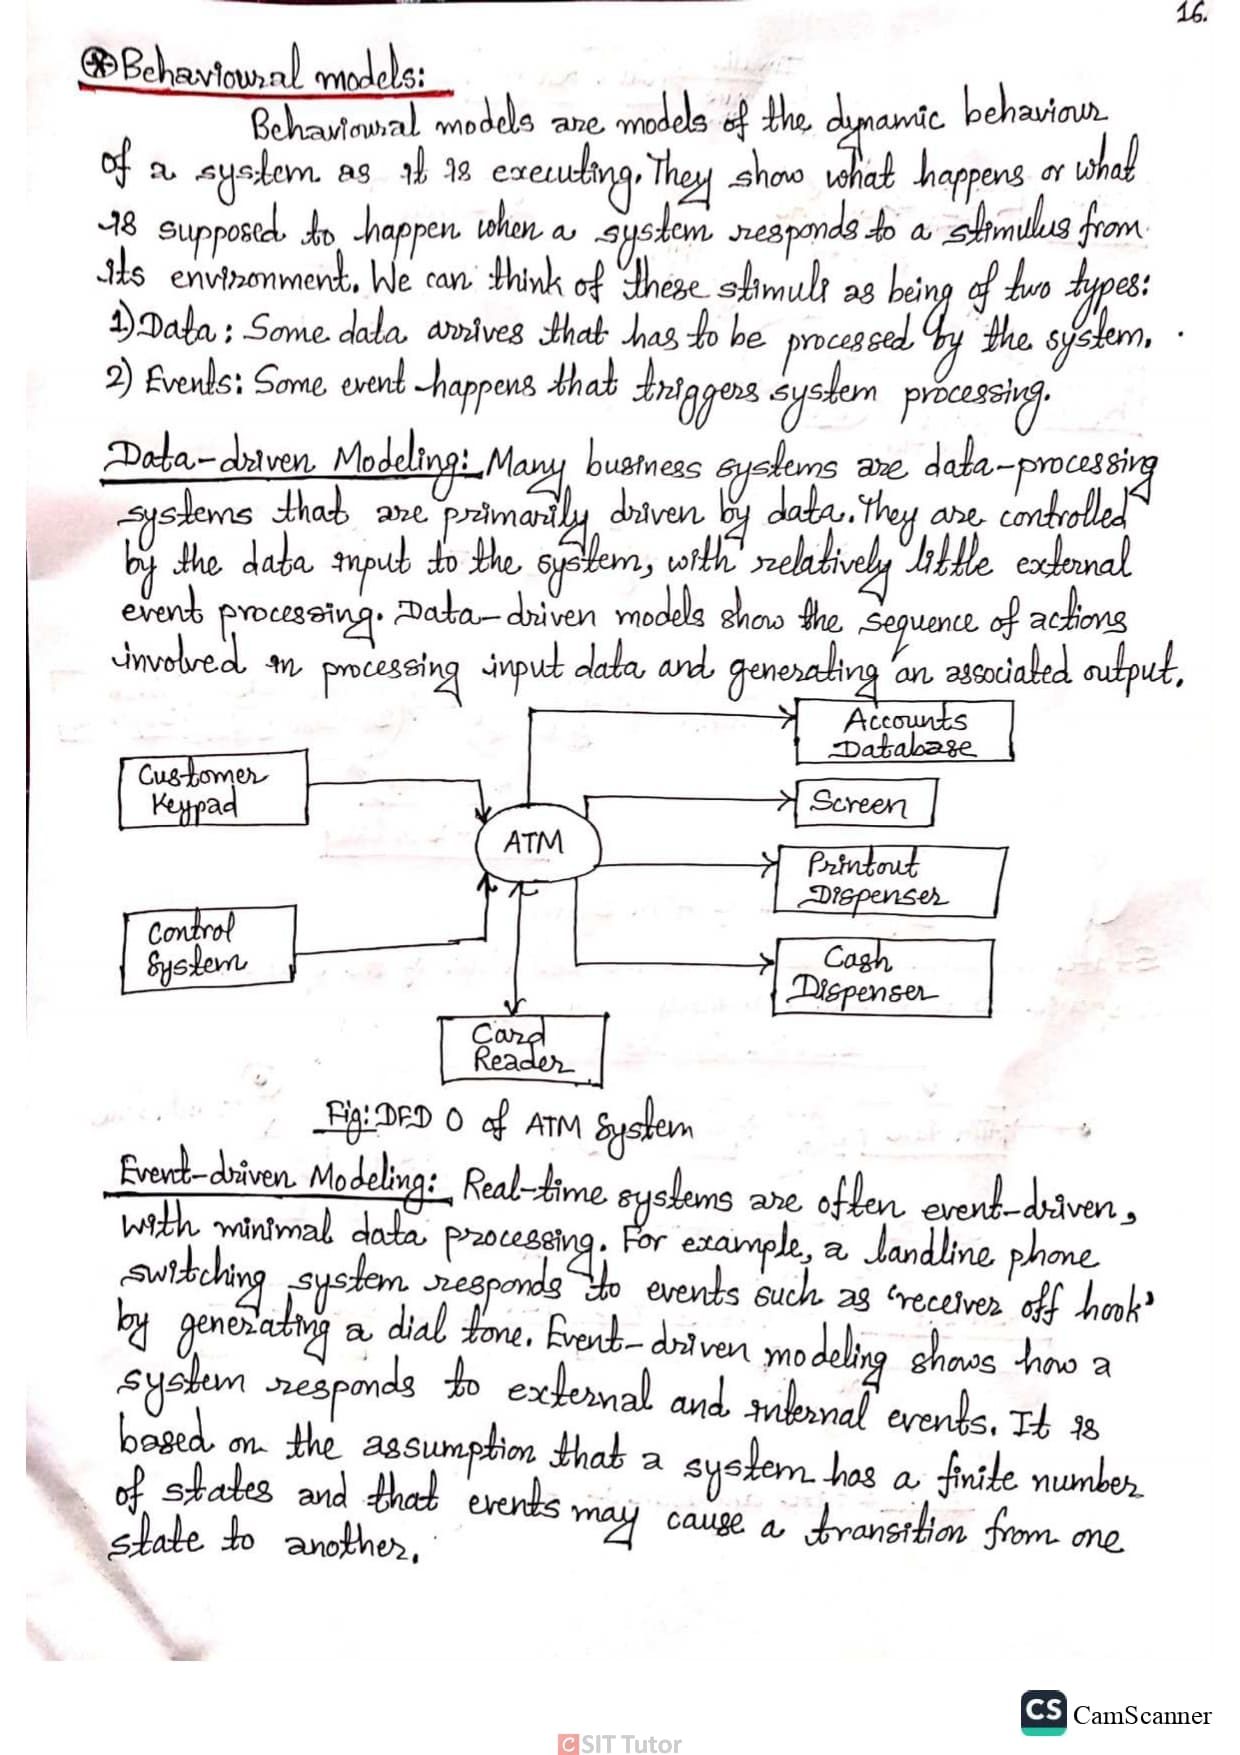 16.
Behavioural models:
Behavioural models are models of the dynamic behaviour
of a system as it is executing. They show what happens or what
is supposed to happen when a system responds to a stimulus from
its environment. We can think of these stimuli as being of two types:
1) Data: Some data arrives that has to be processed by the system.
2) Events: Some event happens that triggers system processing.
Data-driven Modeling: Many business systems are data-processing
systems that are primarily driven by data. They are controlled
by the data input to the system, with relatively little external
event processing. Data-driven models show the sequence of actions
involved in processing input data and generating an associated output.
Accounts
Database
Customer
Keypad
Screen
ATM
Printout
Dispenser
Control
System
Cash
Dispenser
Card
Reader
Fig: DFD 0 of ATM System
Event-driven Modeling: Real-time systems are often event-driven,
with minimal data processing. For example, a landline phone
switching system responds to events such as 'receiver off hook'
by generating a dial tone. Event-driven modeling shows how a
system responds to external and internal events. It is
based on the assumption that a system has a finite number
of states and that events may cause a transition from one
state to another.
CS CamScanner
CSIT Tutor